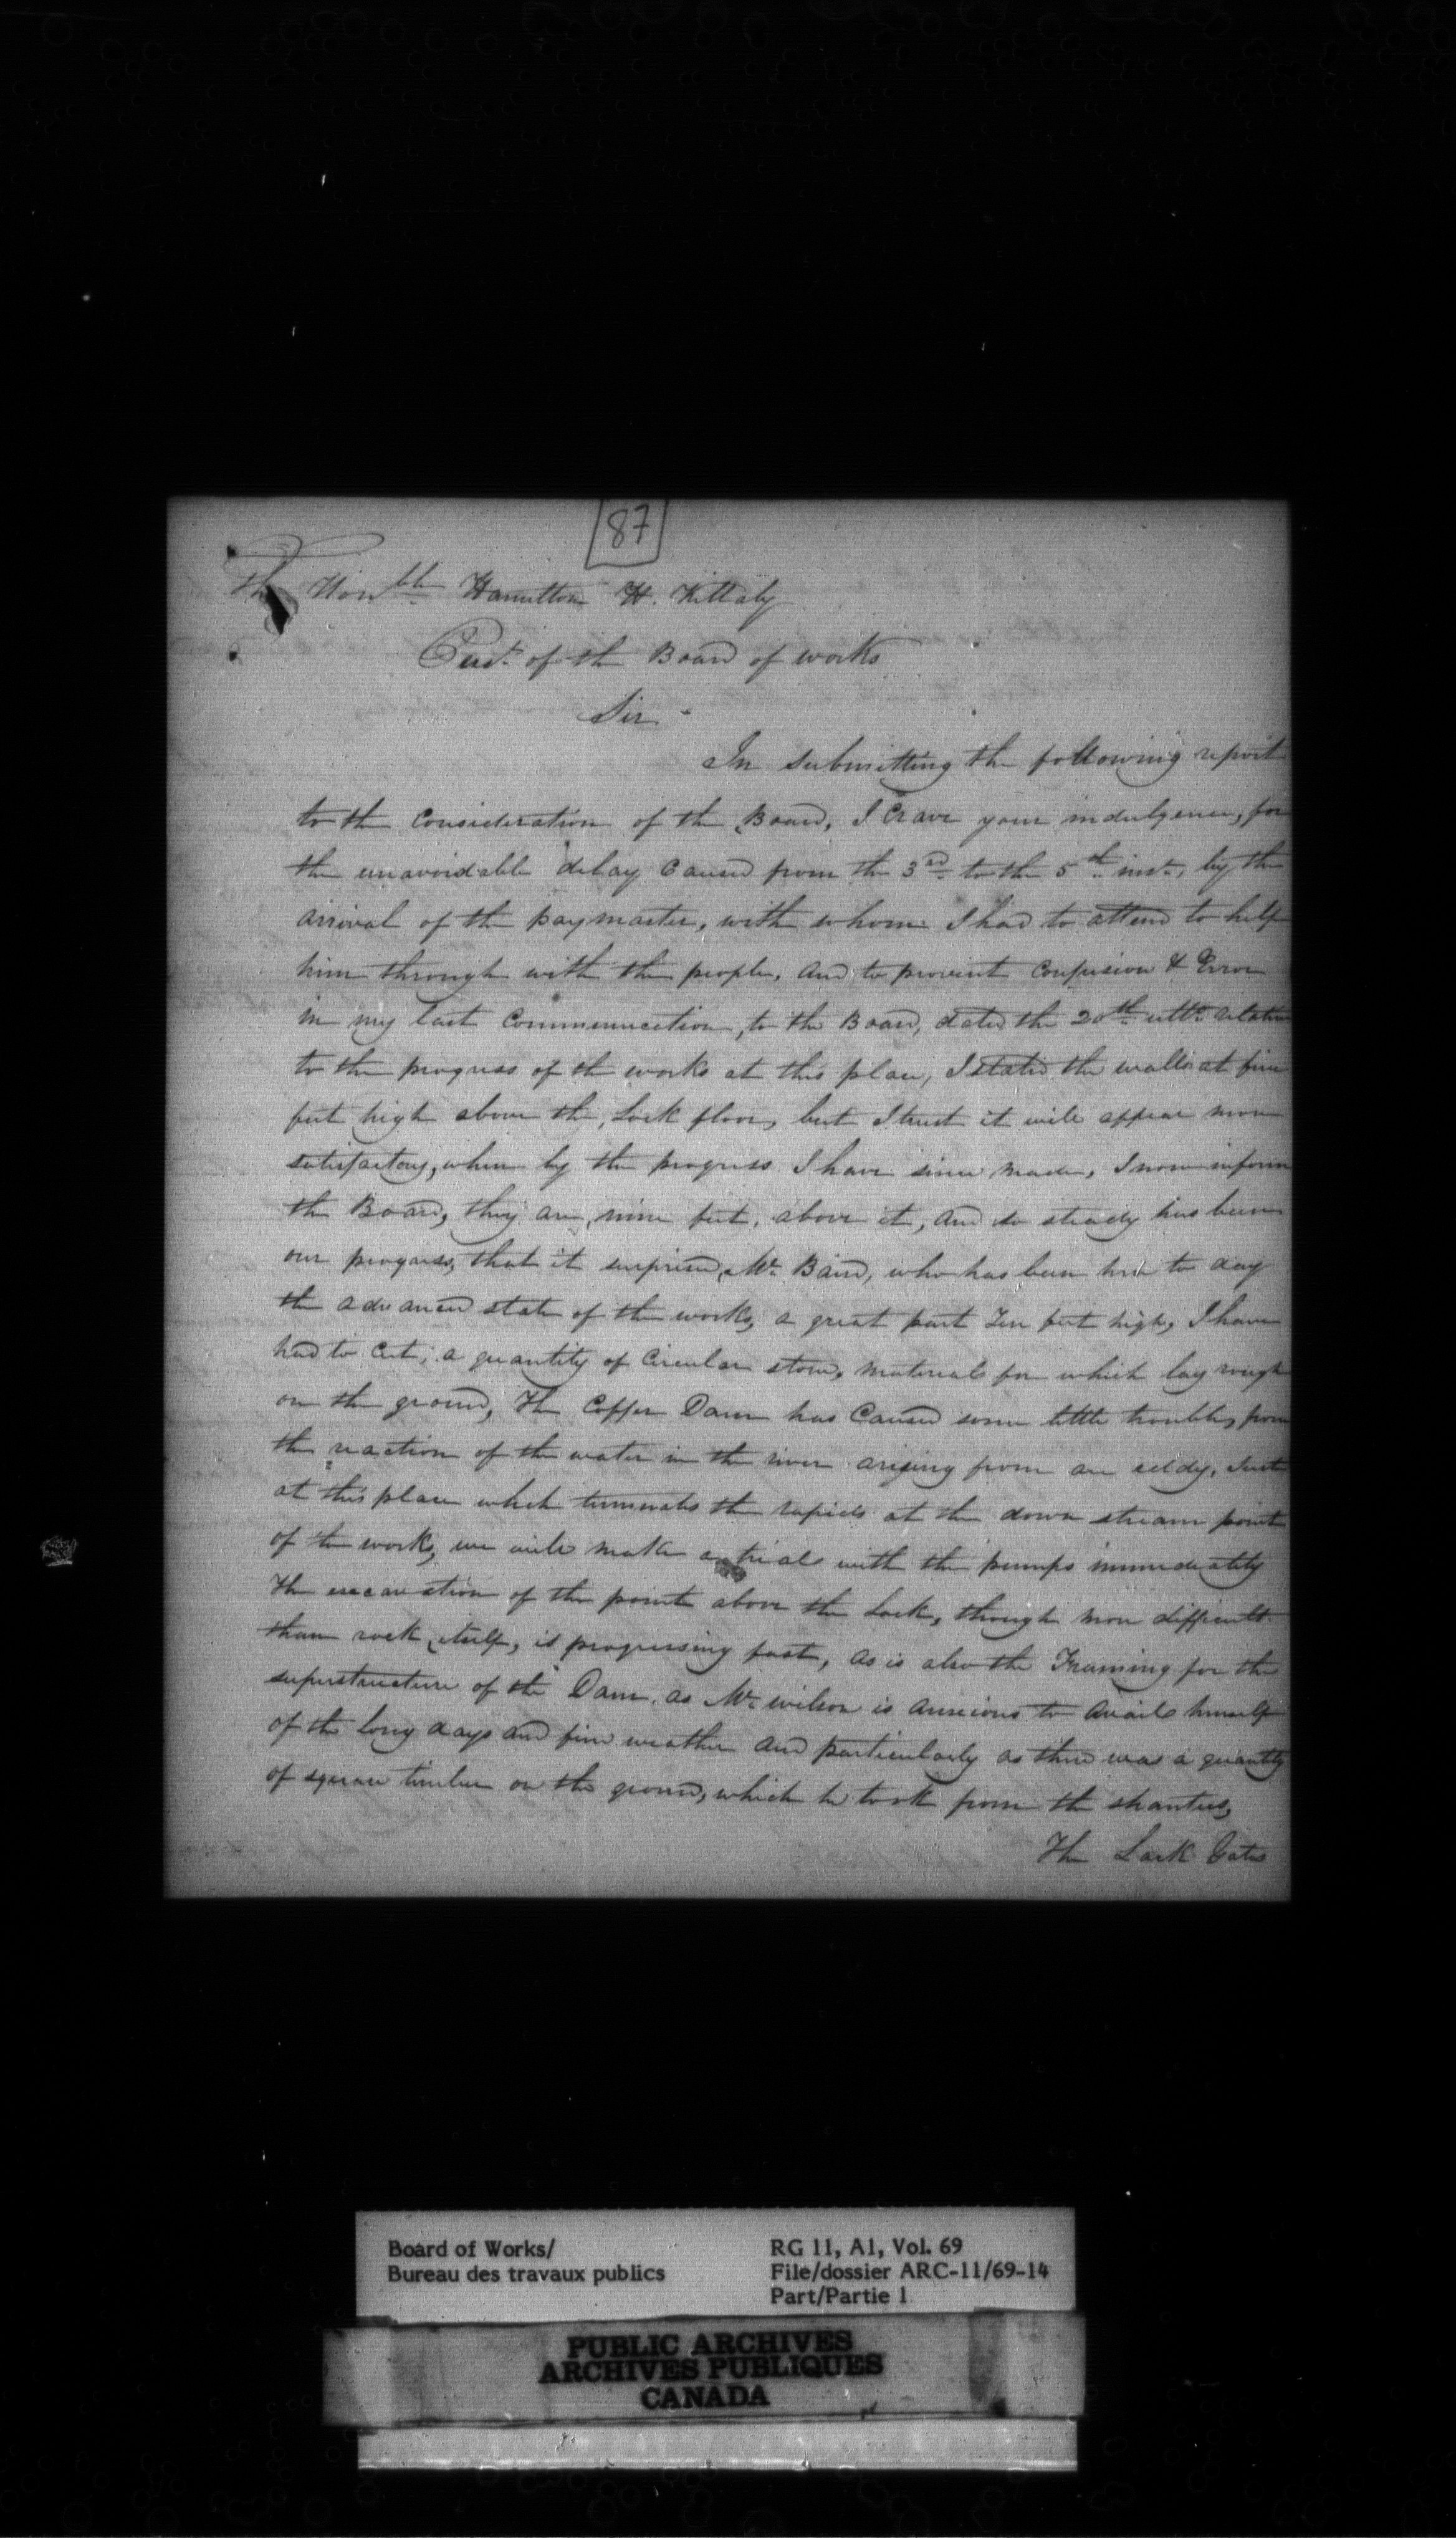 87
The Honble Hamilton H. Killaly
Presdt of the Board of works
Sir
In submitting the following report
to the Consideration of the Board, I Crave your indulgence, for
the unavoidable delay Caused from the 3rd to the 5th inst, by the
arrival of the paymaster, with whom I had to attend to help
him through with the people, and to prevent Confusion & Error
in my last Communication, to the Board, dated the 20th ulto relative
to the progress of the works at this place, I stated the walls at five
feet high above the Lock floor, but I trust it will appear more
satisfactory, when by the progress I have since made, I now inform
the Board, they are, nine feet, above it, and so steady has been
our progress, that it surprised, Mr Baird, who has been here to day
the advanced state of the works, a great part Ten feet high, I have
had to Cut, a quantity of Circular stone, materials for which lay rough
on the ground, The Coffer Dam has Caused some little trouble, from
the reaction of the water in the river arising from an eddy, Just
at this place which terminates the rapids at the down stream point
of the work, we will make a trial with the pumps immediately
The excavation of the point above the Lock, though more difficult
than rock itself, is progressing fast, as is also the Framing for the
superstructure of the Dam, as Mr wilson is anxious to Avail himself
of the long days and fine weather and particularly as there was a quantity
of square timber on the ground, which he took from the shanties,
The Lock Gates
Board of Works/
Bureau des travaux publics
RG 11, A1, Vol. 69
File/dossier ARC-11/69-14
Part/Partie 1
PUBLIC ARCHIVES
ARCHIVES PUBLIQUES
CANADA